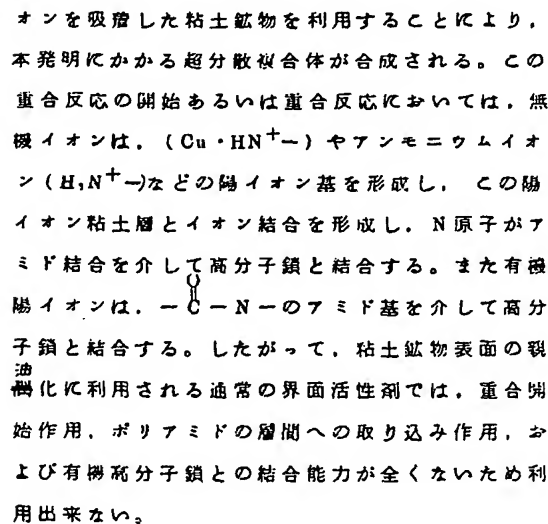 オンを吸着した粘土鉱物を利用することにより，
本発明にかかる超分散複合体が合成される。この
重合反応の開始あるいは重合反応においては，無
機イオンは，(Cu・HN⁺−)やアンモニウムイオ
ン(H₃N⁺−)などの陽イオン基を形成し，この陽
イオン粘土層とイオン結合を形成し，N原子がア
ミド結合を介して高分子鎖と結合する。また有機
O
‖
陽イオンは，−C−N−のアミド基を介して高分
子鎖と結合する。したがって，粘土鉱物表面の親
油
化に利用される通常の界面活性剤では，重合開
始作用，ポリアミドの層間への取り込み作用，お
よび有機高分子鎖との結合能力が全くないため利
用出来ない。